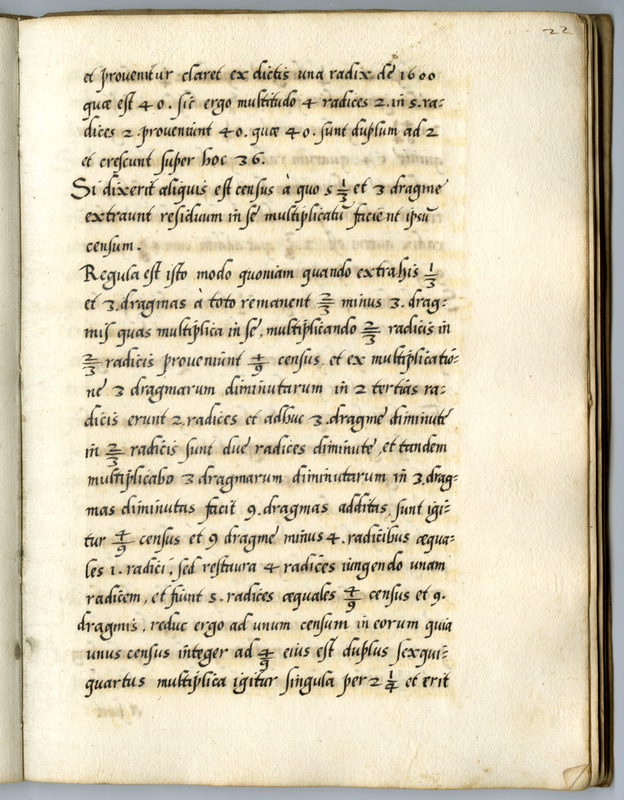 22
et provenitur claret ex dictis una radix de 1600
quæ est 40. sic ergo multitudo 4 radices 2. in s. ra=
dices 2. proveniunt 40. quæ 40. sunt duplum ad 2
et crescunt super hoc 36.
Si dixerit aliquis est census à quo s 1/3 et 3 dragme
extraunt residuum in se multiplicatū facient ipsū
censum.
Regula est isto modo quoniam quando extrahis 1/3
et 3. dragmas à toto remanent 2/3 minus 3. drag=
mis quas multiplica in se, multiplicando 2/3 radicis in
2/3 radicis proveniunt 4/9 census, et ex multiplicatio=
ne 3 dragmarum diminutarum in 2 tertias ra=
dicis erunt 2. radices et adhuc 3. dragme diminute
in 2/3 radicis sunt due radices diminute, et tandem
multiplicabo 3 dragmarum diminutarum in 3. drag=
mas diminutas facit 9. dragmas additas, sunt igi=
tur 4/9 census et 9 dragme minus 4. radicibus æqua=
les 1. radici, sed restaura 4 radices iungendo unam
radicem, et fiunt s. radices æquales 4/9 census et 9.
dragmis, reduc ergo ad unum censum in eorum quia
unus census integer ad 4/9 eius est duplus sexqui=
quartus multiplica igitur singula per 2 1/4 et erit